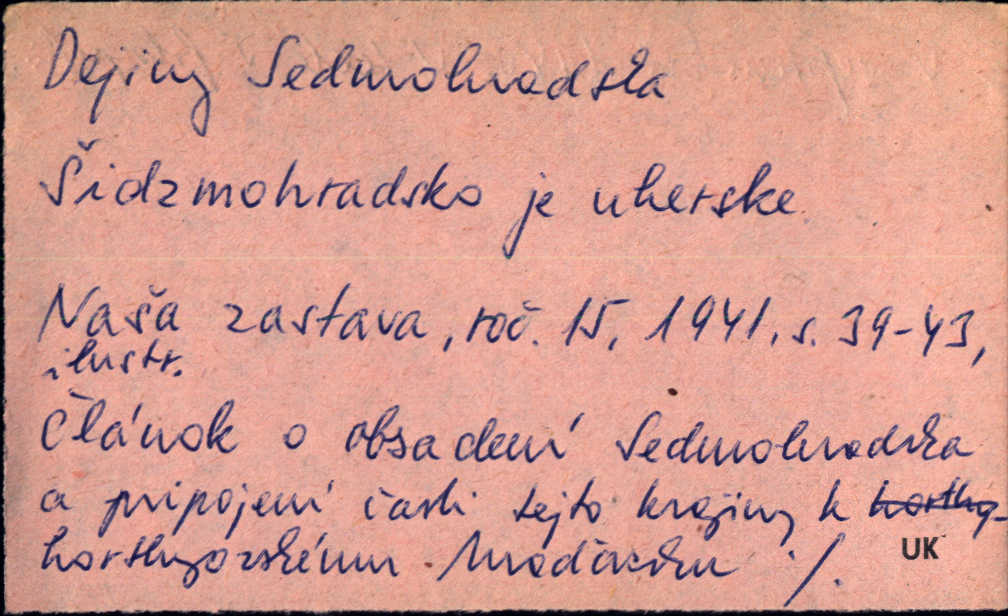 Dejiny Sedmohradska
Šidzmohradsko je uherske.
Naša zastava, roč. 15, 1941, s. 39-43,
ilustr.
Článok o obsadení Sedmohradska
a pripojení časti tejto krajiny k horthy-
horthyovskému Maďarsku ./.
UK